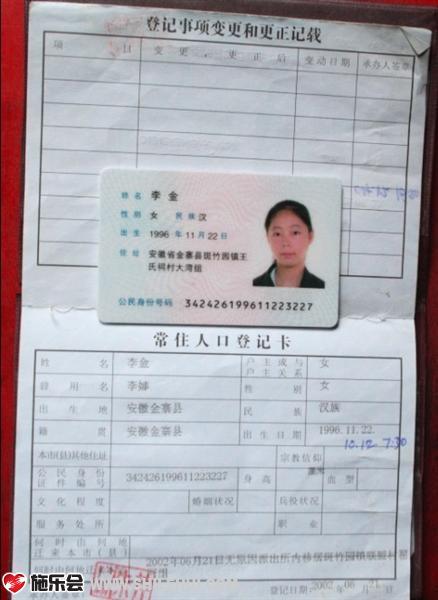 登记事项变更和更正记载
项 目 变更、更正后 变动日期 承办人签章
姓名 李金
性别 女 民族 汉
出生 1996 年 11 月 22 日
住址 安徽省金寨县斑竹园镇王
氏祠村大湾组
公民身份号码 342426199611223227
常住人口登记卡
姓名 李金 户主或与户主关系 女
曾用名 李娜 性别 女
出生地 安徽金寨县 民族 汉族
籍贯 安徽金寨县 出生日期 1996.11.22.
10.12 7:30
本市(县)其他住址 宗教信仰
公民身份证件编号 342426199611223227 身高 血型
文化程度 婚姻状况 兵役状况
服务处所 职业
何时由何地迁来本市(县)
2002年06月21日
何时由何地迁
承办人签章: 登记日期: 2002 年 06 月 21 日
施乐会